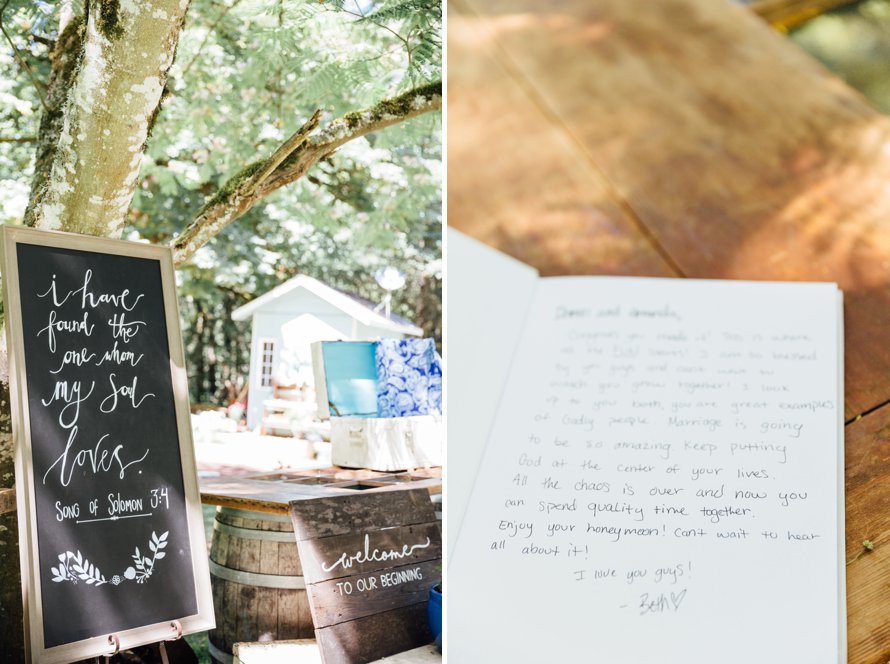 i have
found the
one whom
my soul
loves.
Song of Solomon 3:4
welcome
TO OUR BEGINNING
and
Congrats you made it! This is where
by you guys and can't wait to
watch you grow together! I look
up to you both, you are great examples
of Godly people. Marriage is going
to be so amazing. Keep putting
God at the center of your lives.
All the chaos is over and now you
can spend quality time together.
Enjoy your honeymoon! Can't wait to hear
all about it!
I love you guys!
- Beth♡